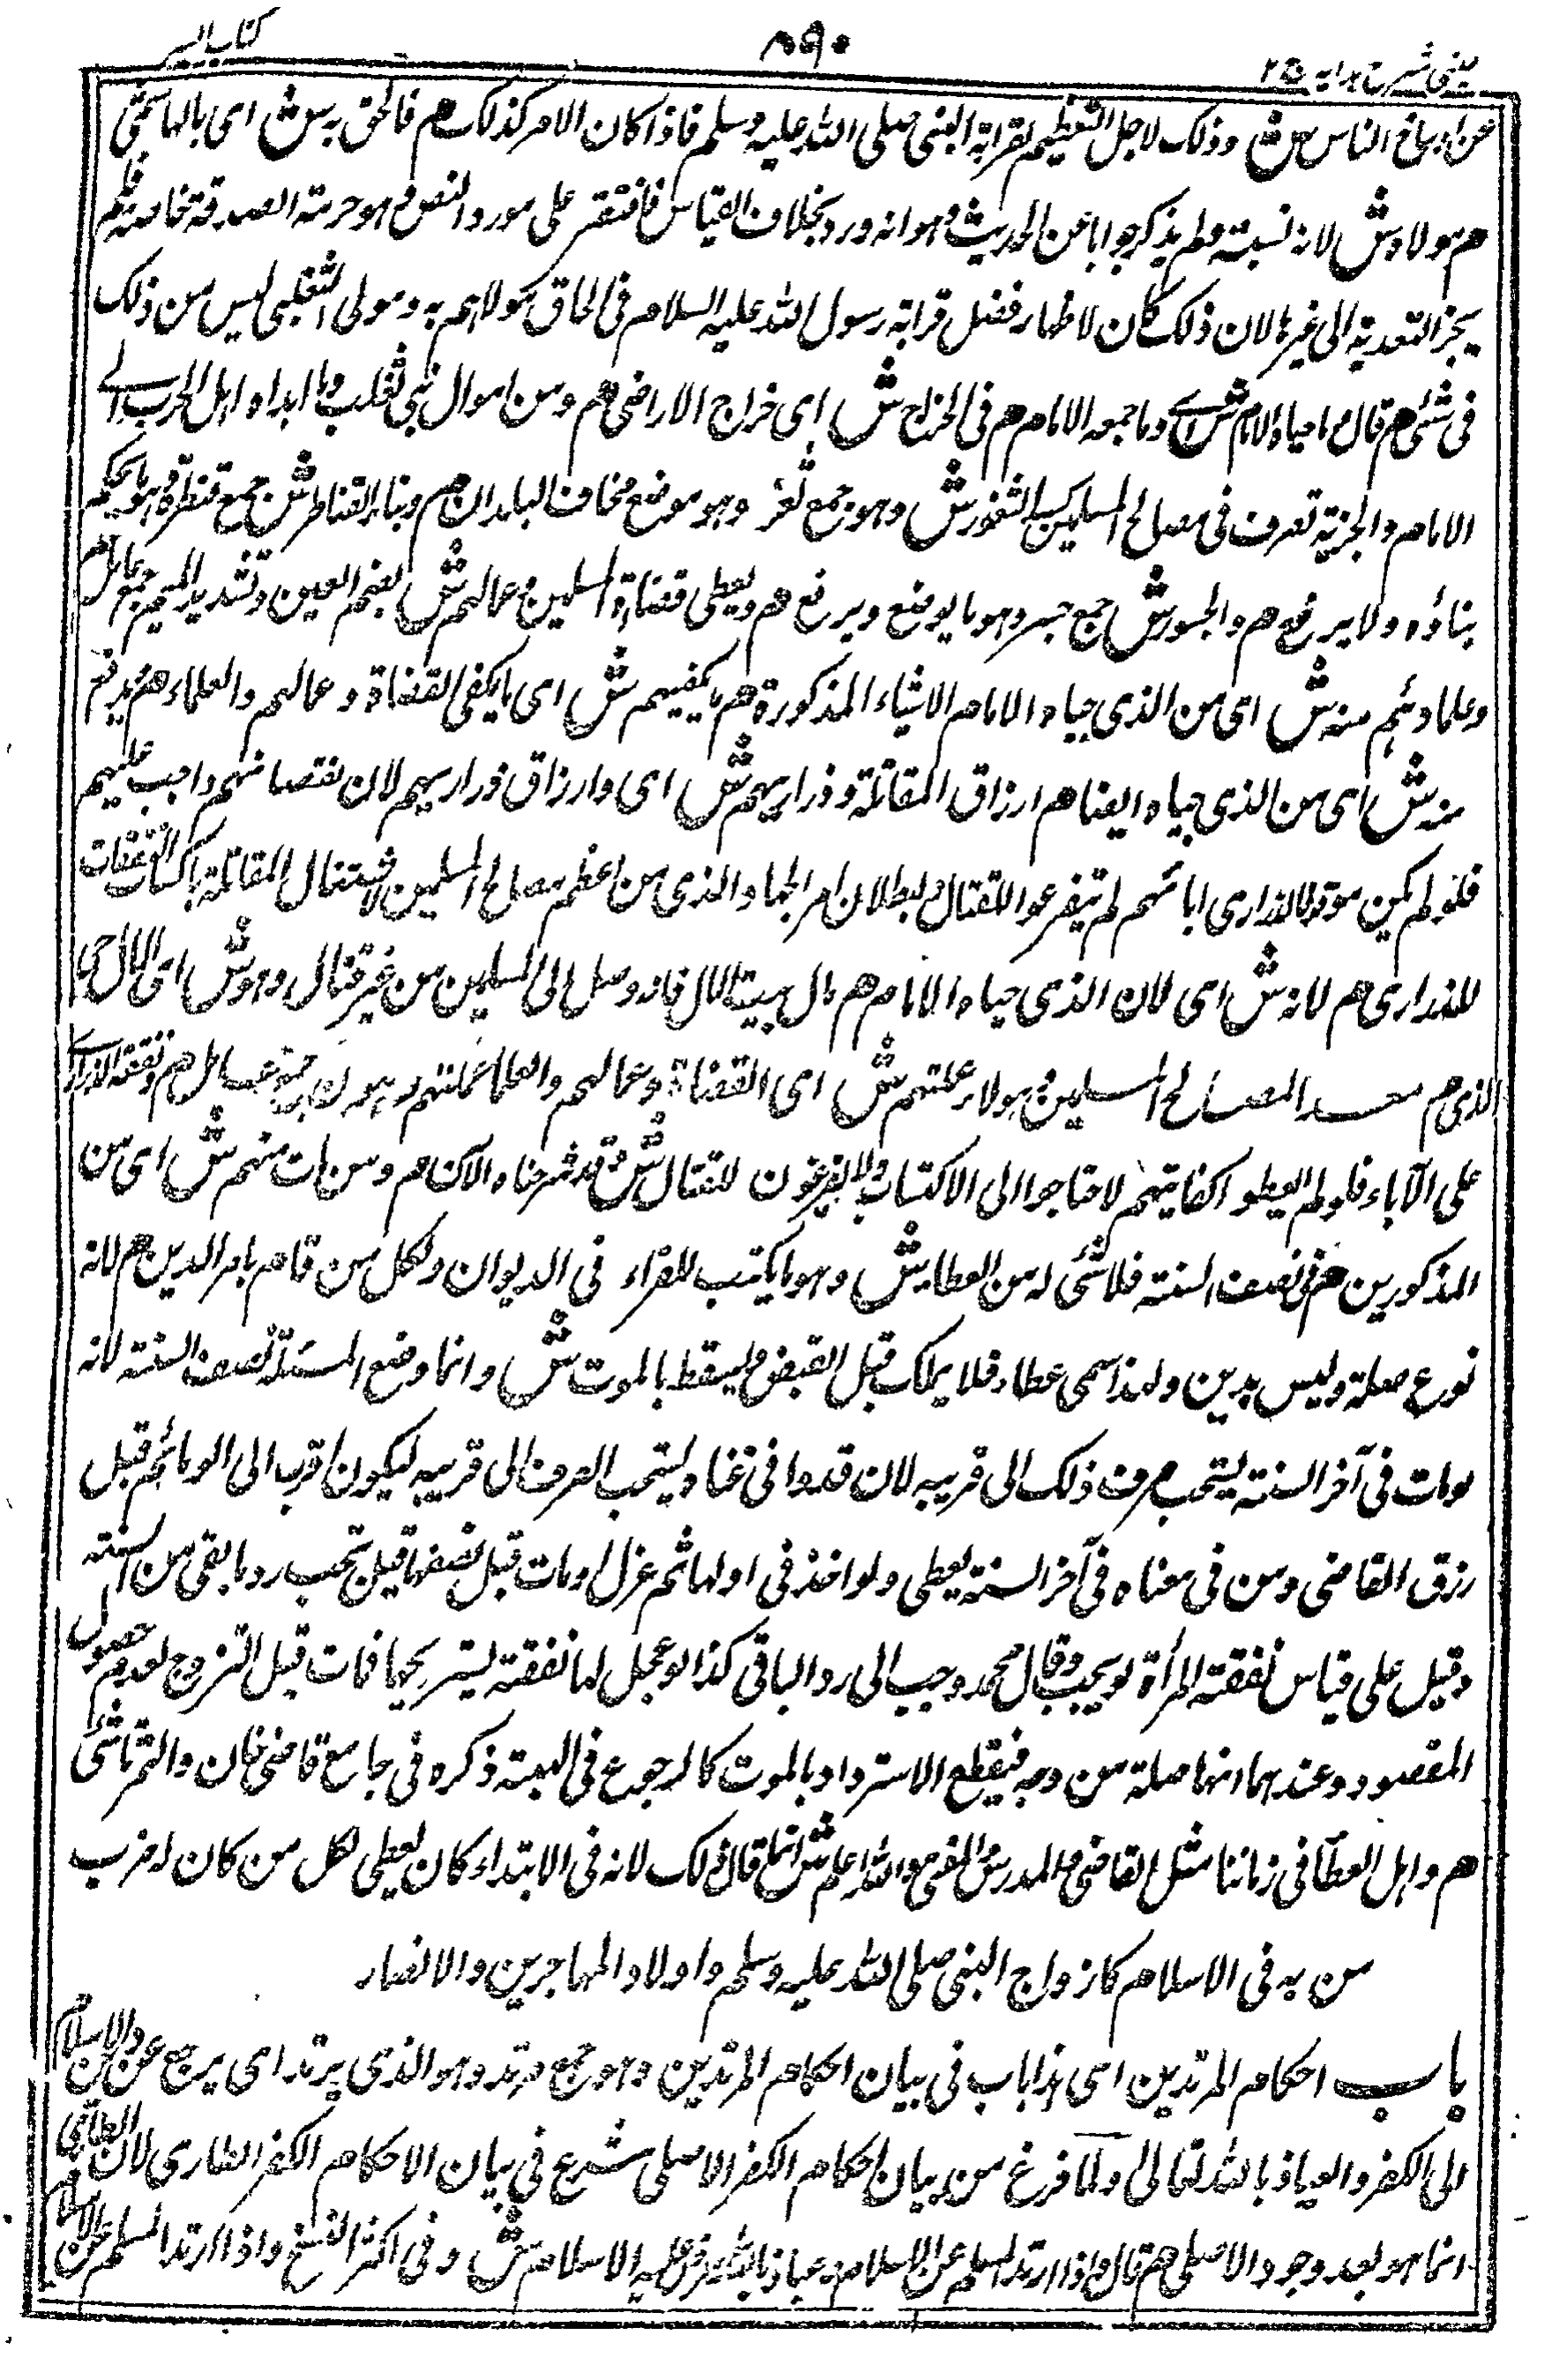 كتاب السير
٨٩٠
عينى شرح هدايه ج ٢
عن اوساخ الناس ش وذلك لاجل التعظيم لقرابة النبى صلى الله عليه وسلم فاذا كان الامر كذلك هم فالحق به ش اى بالهاشمى
هم مولاه ش لانه نسبته ولم يذكر جوابا عن الحديث وهو انه ورد بخلاف القياس فاقتصر على مورد النص وهو حرمة الصدقة خاصة فلم
يجز التعدية الى غيرها لان ذلك كان لاظهار فضل قرابة رسول الله عليه السلام فى الحاق مولاهم به ومولى التغلبى ليس من ذلك
فى شئ هم قال وما جباه الامام ش اى وما جمعه الامام هم فى الخراج ش اى خراج الاراضى هم ومن اموال بنى تغلب وما اهداه اهل الحرب الى
الامام والجزية تصرف فى مصالح المسلمين كسد الثغور ش وهو جمع ثغر وهو موضع مخافة البلدان هم وبناء القناطر ش جمع قنطرة وهو ما يحكم
بناؤه ولا يرفع هم والجسور ش جمع جسر وهو ما يوضع ويرفع هم ويعطى قضاة المسلمين وعمالهم ش بضم العين وتشديد الميم جمع عامل هم
وعلماؤهم منه ش اى من الذى جباه الامام الاشياء المذكورة هم ما يكفيهم ش اى ما يكفى القضاة وعمالهم والعلماء هم ويدفع
منه ش اى من الذى جباه ايضا هم ارزاق المقاتلة وذراريهم ش اى وارزاق ذراريهم لان نفقاتهم واجب عليهم
فلو لم يكن مؤنة الذرارى ابائهم لم يتفرغوا للقتال وبطلان امر الجهاد الذى من اعظم مصالح المسلمين لاشتغال المقاتلة باكتساب النفقات
للذرارى هم لانه ش اى لان الذى جباه الامام هم مال بيت المال فانه وصل الى المسلمين من غير قتال وهو ش اى المال
الذى هم معد لمصالح المسلمين وهولاء عملتهم ش اى القضاة وعمالهم والعلماء عملتهم وهو جمع عامل هم ونفقة الذرارى
على الآباء فلو لم يعطوا كفايتهم لاحتاجوا الى الاكتساب ولا يتفرغون للقتال ش وقد شرحناه الآن هم ومن مات منهم ش اى من
المذكورين هم فى نصف السنة فلا شئ له من العطاء ش وهو ما يكتب للغزاة فى الديوان ولكل من قام بامر الدين هم لانه
نوع صلة وليس بدين ولهذا سمى عطاء فلا يملك قبل القبض ويسقط بالموت ش وانما وضع المسئلة نصف السنة لانه
لو مات فى آخر السنة يستحب صرف ذلك الى قريبه لان قد وافى عناه فيستحب الصرف الى قريبه ليكون اقرب الى الوفاء ثم قبل
رزق القاضى ومن فى معناه فى آخر السنة يعطى ولو اخذ فى اولها ثم عزل او مات قبل نصفها قيل يجب رد ما بقى من السنة
وقيل على قياس نفقة المرأة لو يجب وقال محمد وجب الى رد الباقى كذا لو عجل لها نفقة ليتزوجها فمات قبل التزوج لعدم حصول
المقصود وعندهما انها صلة من وجه فينقطع الاسترداد بالموت كالرجوع فى الهبة ذكره فى جامع قاضى خان والتمرتاشى
هم واهل العطاء فى زماننا مثل القاضى والمدرس والمفتى والله اعلم ش انما قال ذلك لانه فى الابتداء كان يعطى لكل من كان له ضرب
من به فى الاسلام كازواج النبى صلى الله عليه وسلم واولاد المهاجرين والانصار
باب احكام المرتدين اى هذا باب فى بيان احكام المرتدين وهو جمع مرتد وهو الذى يرتد اى يرجع عن دين الاسلام
الى الكفر والعياذ بالله تعالى ولما فرغ من بيان احكام الكفر الاصلى شرع فى بيان الاحكام الكفر الطارى لان الطارى
انما هو بعد وجود الاصلى هم قال واذا ارتد المسلم عن الاسلام والعياذ بالله عرض عليه الاسلام ش وفى اكثر النسخ واذا ارتد المسلم عن الاسلام